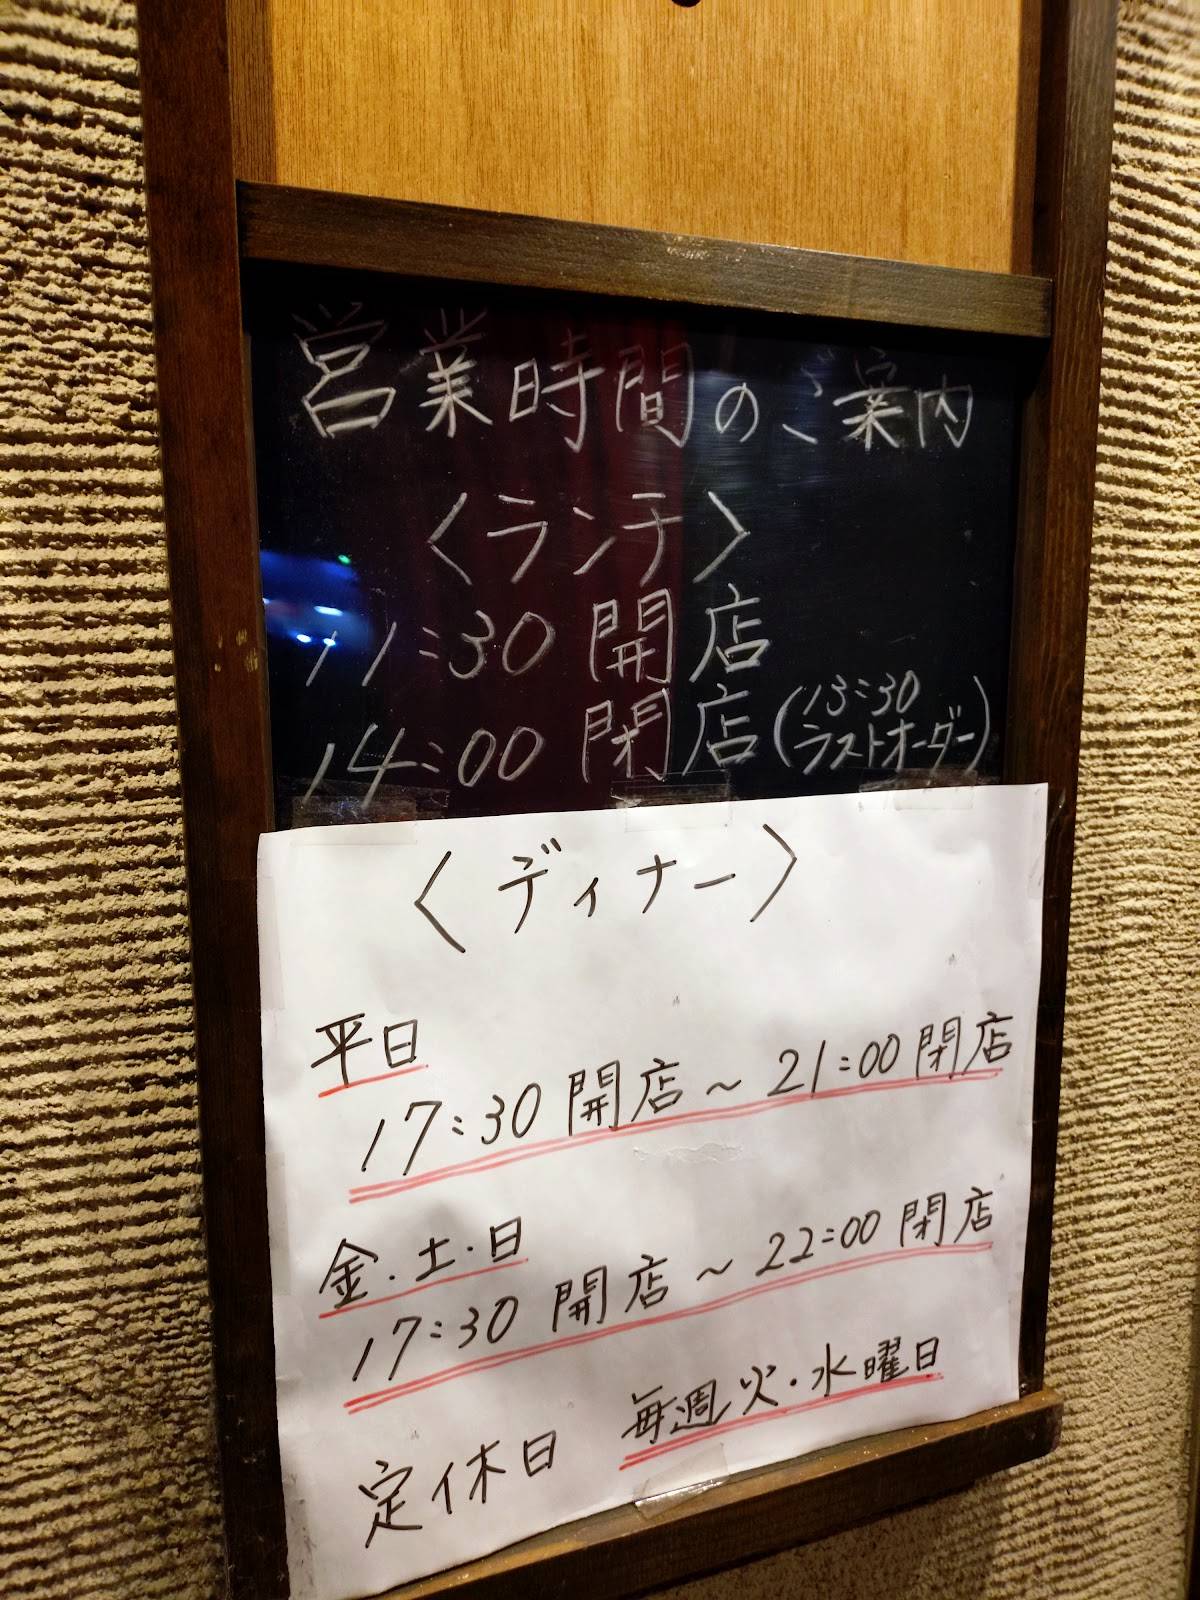 営業時間のご案内
〈ランチ〉
11:30 開店
14:00 閉店(13:30 ラストオーダー)
〈ディナー〉
平日
17:30 開店～21:00 閉店
金.土.日
17:30 開店～22:00 閉店
定休日 毎週火・水曜日